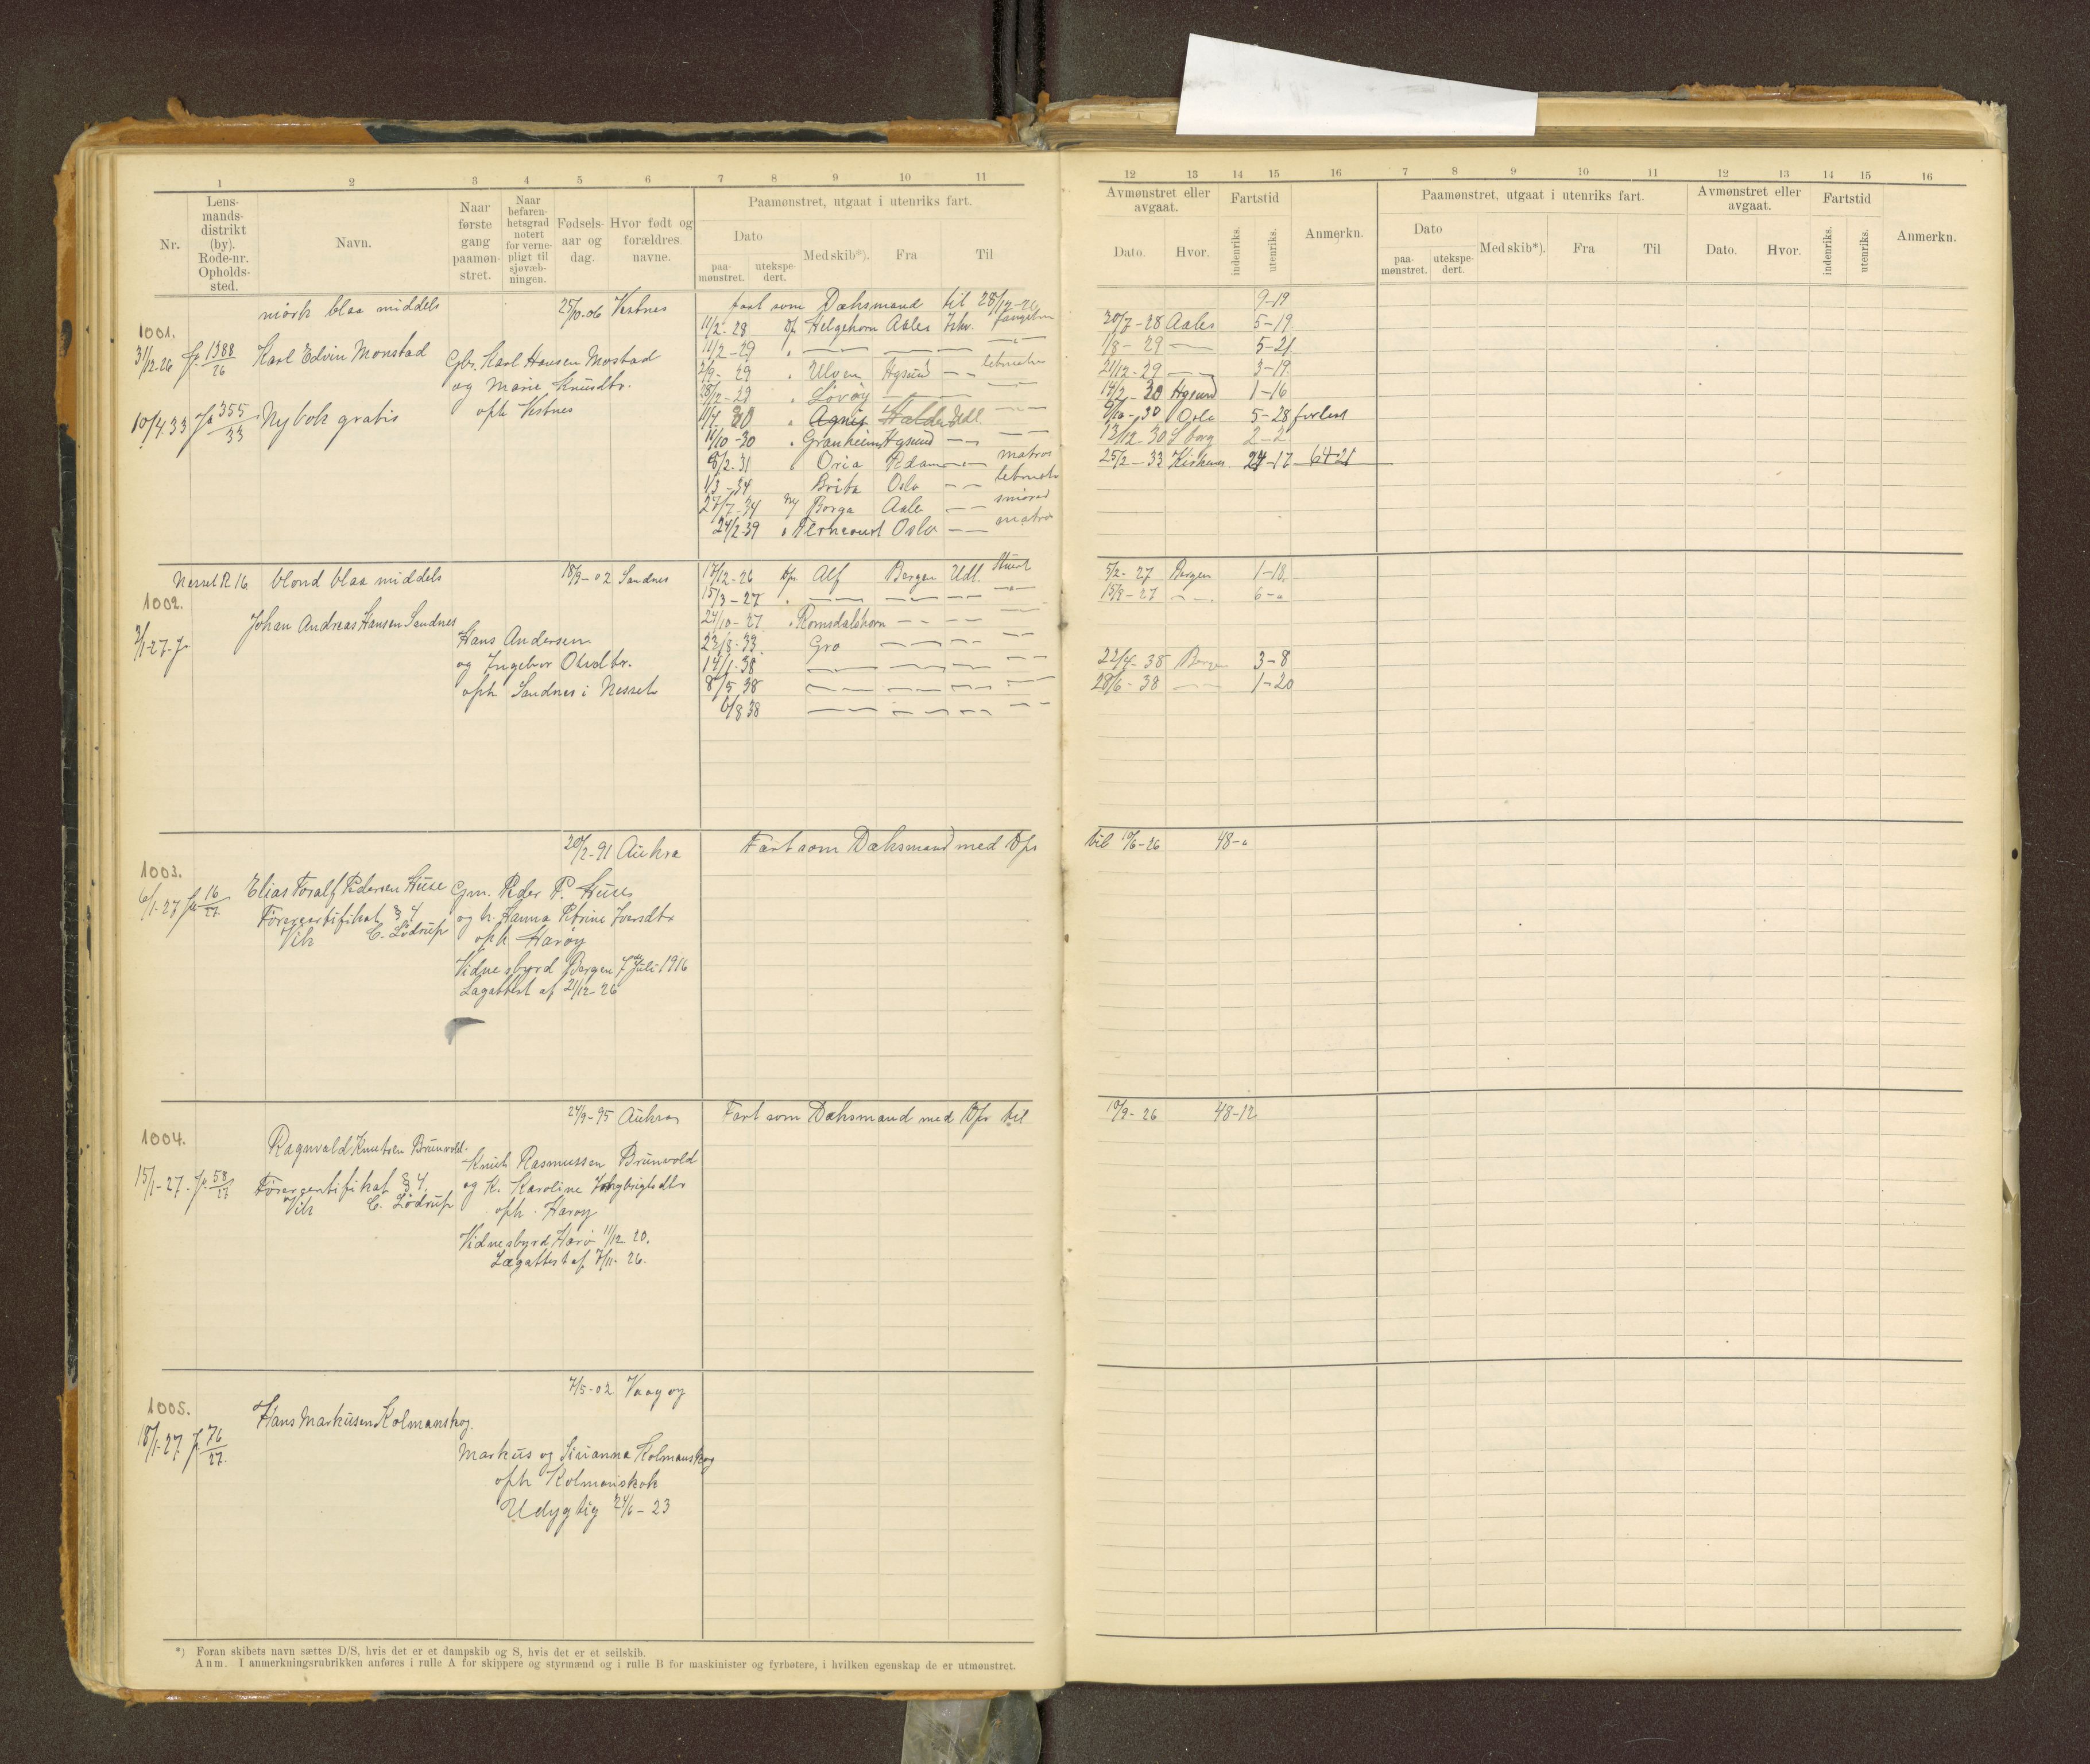 1 2 3 4 5 6 7 8 9 10 11
Nr.
Lens-
mands-
distrikt
(by).
Rode-nr.
Opholds-
sted.
Navn.
Naar
første
gang
paamøn-
stret.
Naar
befaren-
hetsgrad
notert
for verne-
pligt til
sjøvæb-
ningen.
Fødsels-
aar og
dag.
Hvor født og
forældres
navne.
Paamønstret, utgaat i utenriks fart.
Dato
paa-
mønstret.
utekspe-
dert.
Med skib*).
Fra
Til
12 13 14 15 16 7 8 9 10 11 12 13 14 15 16
Avmønstret eller
avgaat.
Dato.
Hvor.
Fartstid
indenriks.
utenriks.
Anmerkn.
Paamønstret, utgaat i utenriks fart.
Dato
paa-
mønstret.
utekspe-
dert.
Med skib*).
Fra
Til
Avmønstret eller
avgaat.
Dato.
Hvor.
Fartstid
indenriks.
utenriks.
Anmerkn.
mørk blaa middels 25/10-06 Vestnes
1001.
31/12-26 1388/26 Karl Edvin Monstad
Gbr. Karl Hansen Mostad
og Marie Knudtr.
oph Vestnes
10/4.33 355/33 Ny bok gratis
fart som Dæksmand til 28/12-26 9-19
11/2-28 Helgehorn Aales 20/7-28 Aales 5-19
11/2-29 1/8-29 5-21
2/9-29 Ulven Hgsund 21/12-29 3-19
28/12-29 Løvøy 14/2-30 Hgsund 1-16
11/4 30 Agnes Halden Udl. 9/10-30 Oslo 5-28 forlist
11/10-30 Granheim Hgsund 13/12-30 2-2
8/2-31 Oria Rdam matros 25/2-33 Kirkenes 24-17 64-21
1/3-34 Brita Oslo
27/7-34 Borga Aales
24/2-39 Oslo matros
Nesset R 16 blond blaa middels 18/9-02 Sandnes
1002.
3/1-27
Johan Andreas Hansen Sandnes
Hans Andersen
og Ingebor Olsdtr.
oph Sandnes i Nesset
17/12-26 Alf Bergen Udl. Stuert 5/2-27 Bergen 1-18
15/3-27 15/9-27 6-"
24/10-27 Romsdalshorn
23/8-33 Gro
14/1-38 22/4-38 Bergen 3-8
8/5 38 28/6-38 1-20
6/8 38
20/2-91 Aukra Fart som Dæksmand med Dps til 10/6-26 48-"
1003.
6/1-27 16/27 Elias Toralf Pedersen Huse
Førercertifikat § 4
Vik C. Lødrup
Gm. Peder P. Huse
og h. Hanna Petrine Iversdtr
oph Harøy
Vidnesbyrd Bergen 7de Juli 1916
Lægattest af 21/12-26
24/9-95 Aukra Fart som Dæksmand med Dps til 10/9-26 48-12
1004.
15/1-27 58/27 Ragnvald Knutsen Brunvold
Førercertifikat § 4.
Vik C. Lødrup
Knut Rasmussen Brunvold
og K. Karoline
oph. Harøy
Vidnesbyrd Harø 11/12 20.
Lægattest af 7/11-26.
7/5-02 Vaagøy
1005.
18/1-27 76/27. Hans Markusen Kolmanskog.
Markus og Sirianna Kolmanskog
oph Kolmanskok
Udygtig 24/6-23
*) Foran skibets navn sættes D/S, hvis det er et dampskib og S, hvis det er et seilskib.
Anm. I anmerkningsrubrikken anføres i rulle A for skippere og styrmænd og i rulle B for maskinister og fyrbøtere, i hvilken egenskap de er utmønstret.